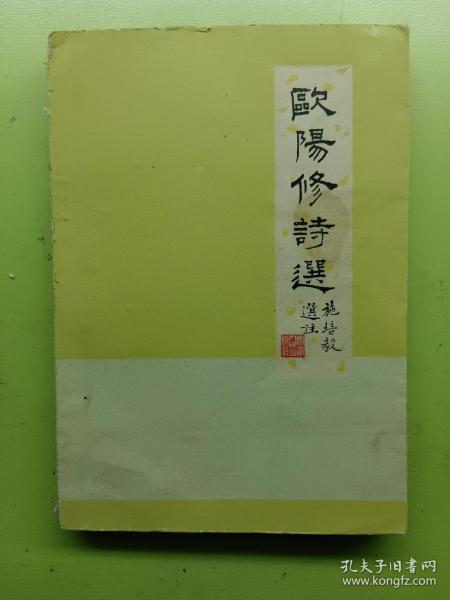 歐陽修詩選
施培毅
選註
孔夫子旧书网
www.kongfz.com